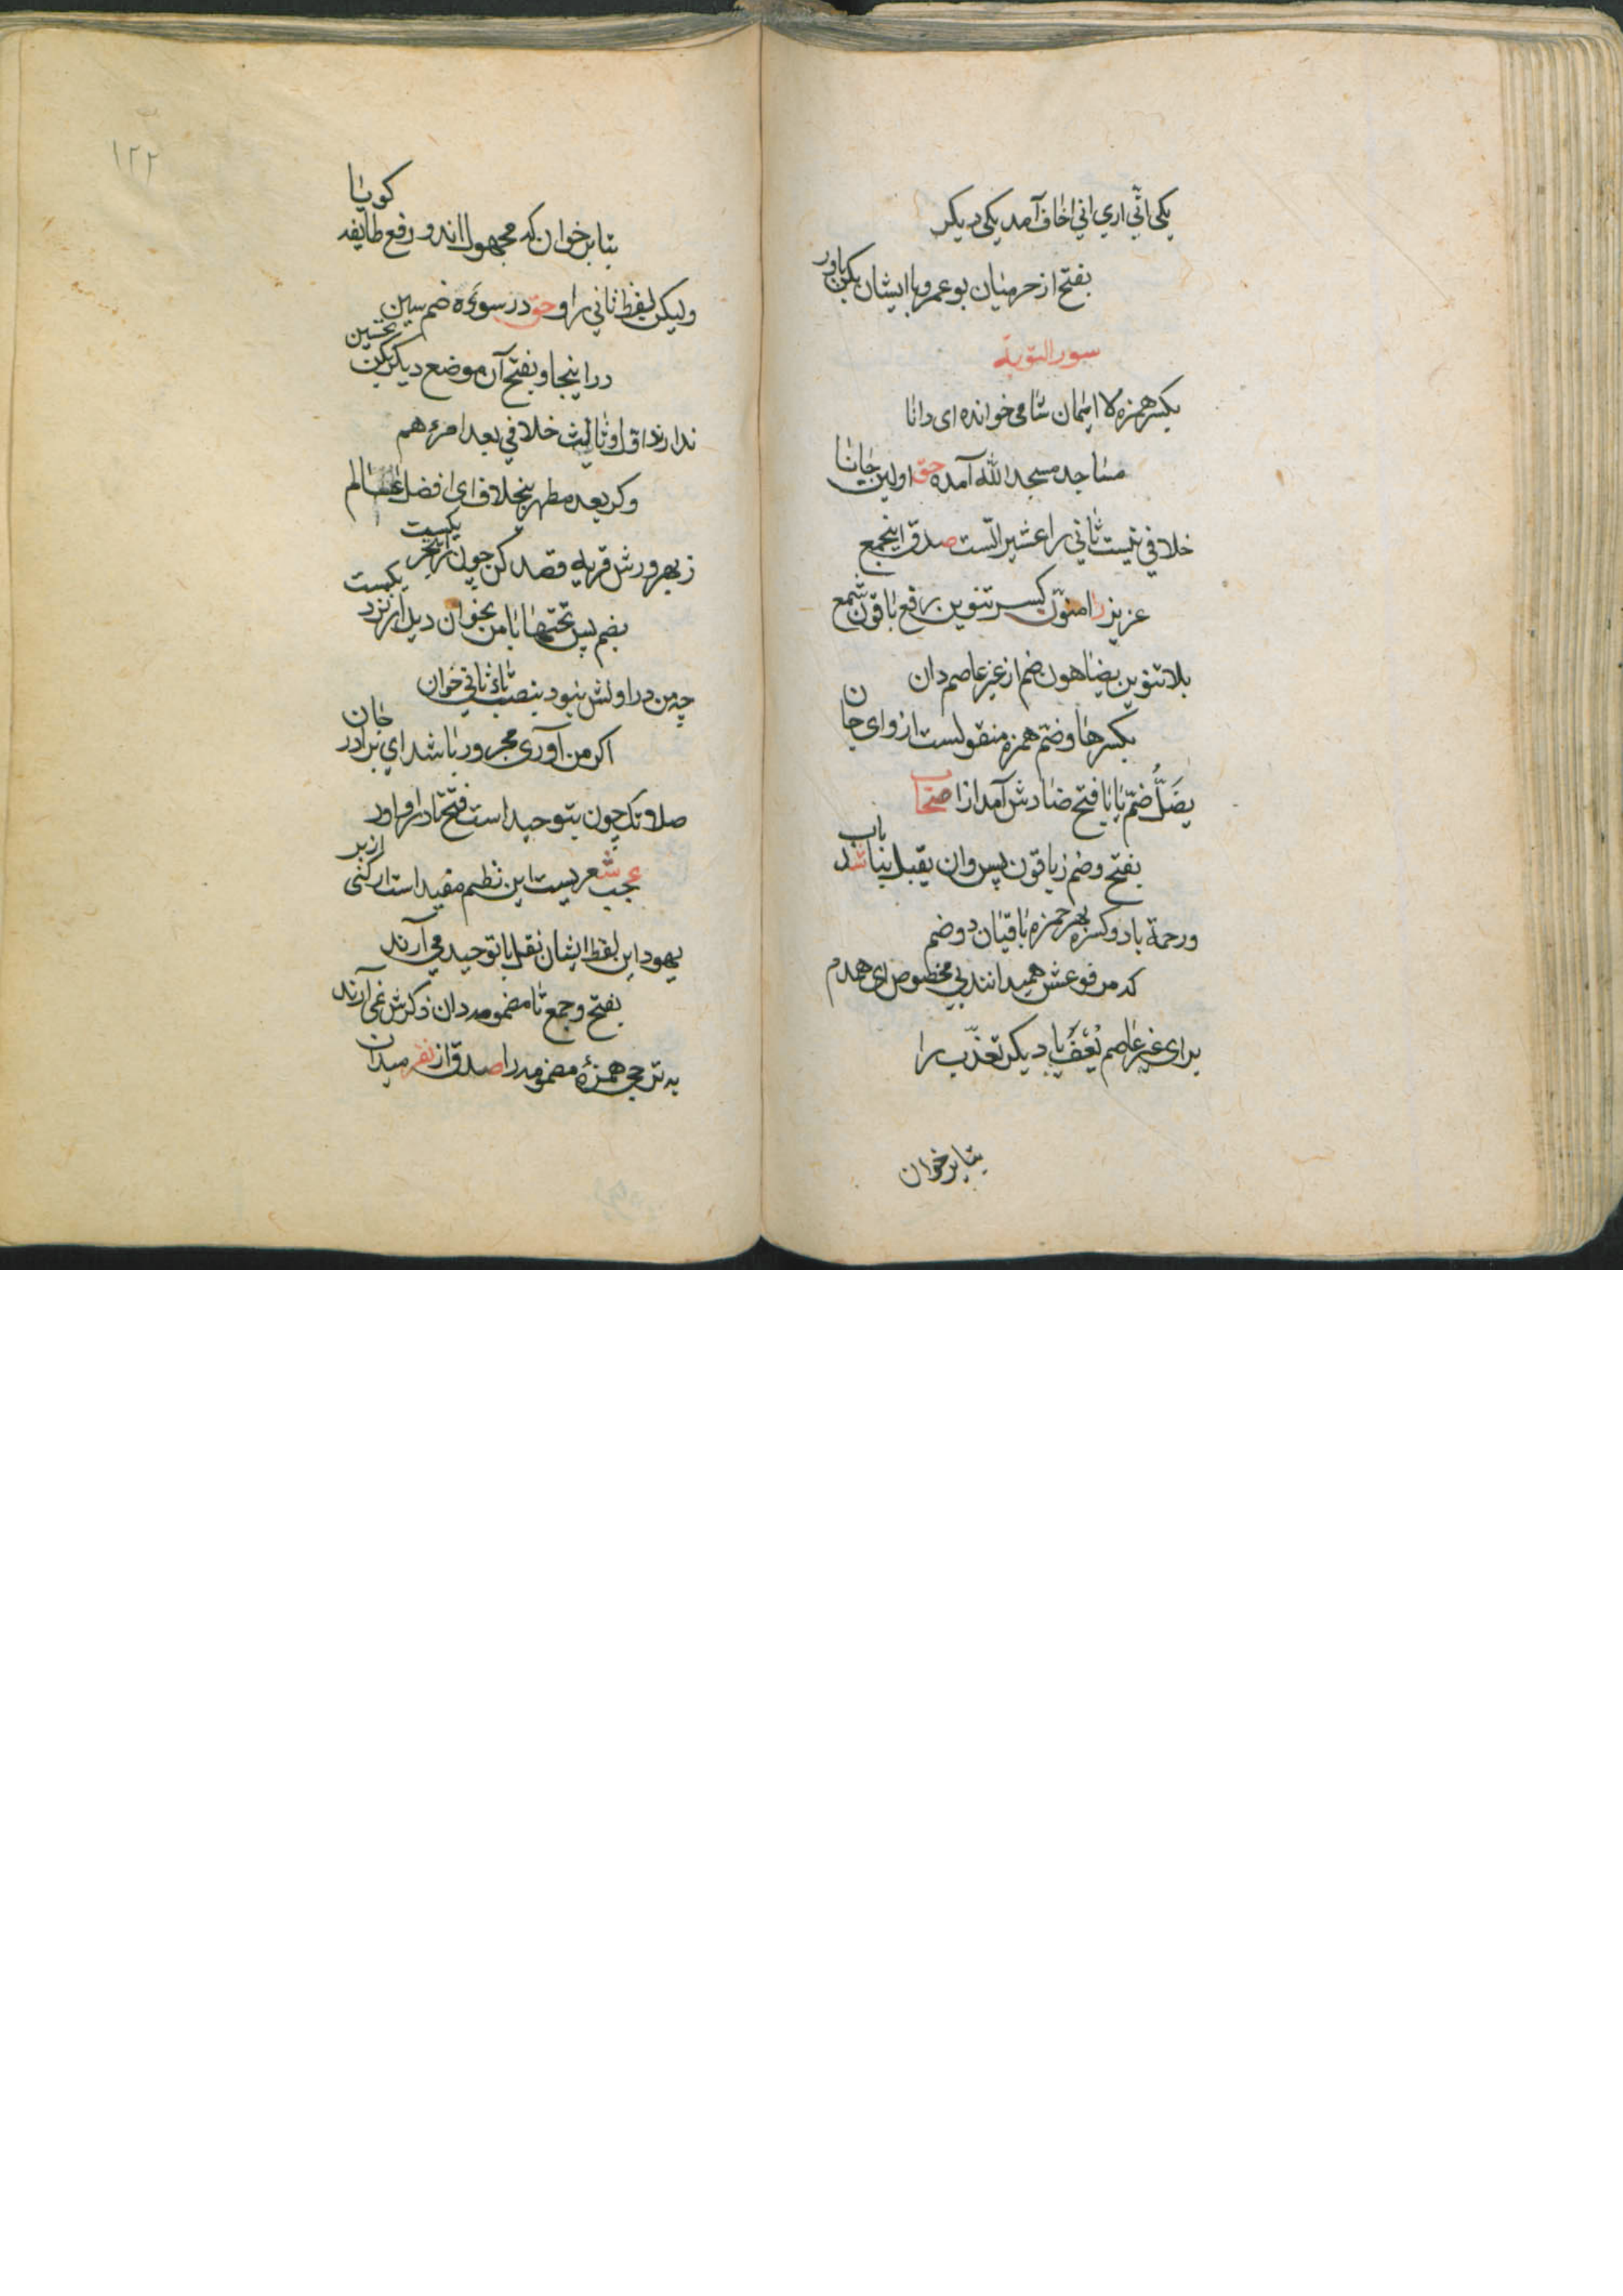 یکی انّي اري اني اخاف آمد یکی دیکر
بفتح از حرمیان بو عمرو با ایشان بکن یاور
سورة التوبة
بکسر همزه لا ایمان شامی خوانده ای دانا
مساجد مسجد الله آمده حق اولین جانا
خلافی نیست ثانی را عشیراتست صدق اینجمع
عزیز را منوّن کسر تنوین رفع باقون شمع
بلا تنوین یضاهون ضم از غیر عاصم دان
بکسر ها و ضم همزه منقولست ازو ای جان
یضَلُّ ضمّ یا با فتح ضادش آمد از اصحاب
بفتح و ضم ز باقون پس و ان یقبل بیا شد باب
ورحمة با دو کسره بهر حمزه باقیان دو ضم
که مرفوعش همیدانند بی مخصوص ای همدم
برای غیر عاصم یُعْفَ با دیکر تعذّب را
بتا بر خوان
١٢٢
بتا بر خوان که مجهول اند و رفع طایفه کویا
ولیکن لفظ ثاني را و حق در سوءه ضم سین
در اینجا و بفتح آن موضع دیکر بکن تحسین
ندارند اول و ثالث خلافي بعد امرء هم
وکر بعد مطهر بیخلاف ای افضل عالم
ز بهر ورش قربه قصد کن چون
بضم پس تحتها با من بخوان دیل از نزد یکیست
چه من در اولش نبود بنصب تاء ثاني خوان
اکر من آوری مجرور باشد ای برادر جان
صلوتک چون بتوحید است فتح تا در او آور
عجب شعریست این نظم مفید است ار کنی از بر
بهود این لفظ ایشان نقل با توحید می آرند
بفتح و جمع تا مضمومه دان ذکرش نمی آرند
به ترجی همزهٔ مضمومه را صدق از نفر میدان